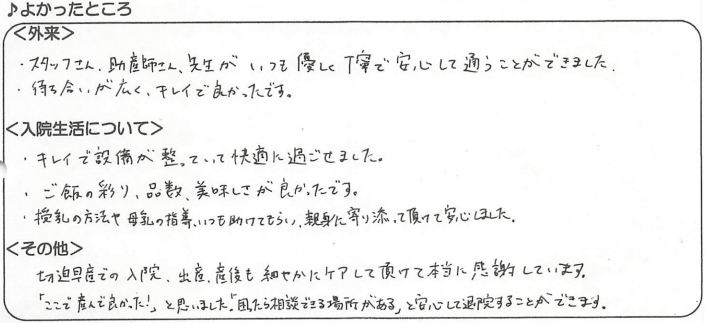 ♪よかったところ
<外来>
・スタッフさん、助産師さん、先生が いつも 優しく 丁寧で 安心して 通うことができました.
・待ち合いが広く、キレイで良かったです。
<入院生活について>
・キレイで設備が 整っていて 快適に過ごせました。
・ご飯の彩り、品数、美味しさが良かったです。
・授乳の方法や 母乳の指導、いつも助けてもらい、親身に寄り添って頂けて安心しました.
<その他>
切迫早産での入院、出産、産後も 細やかにケアして頂けて本当に感謝しています.
「ここで産んで良かった!」と思いました。「困ったら相談できる場所がある」と安心して退院することができます.